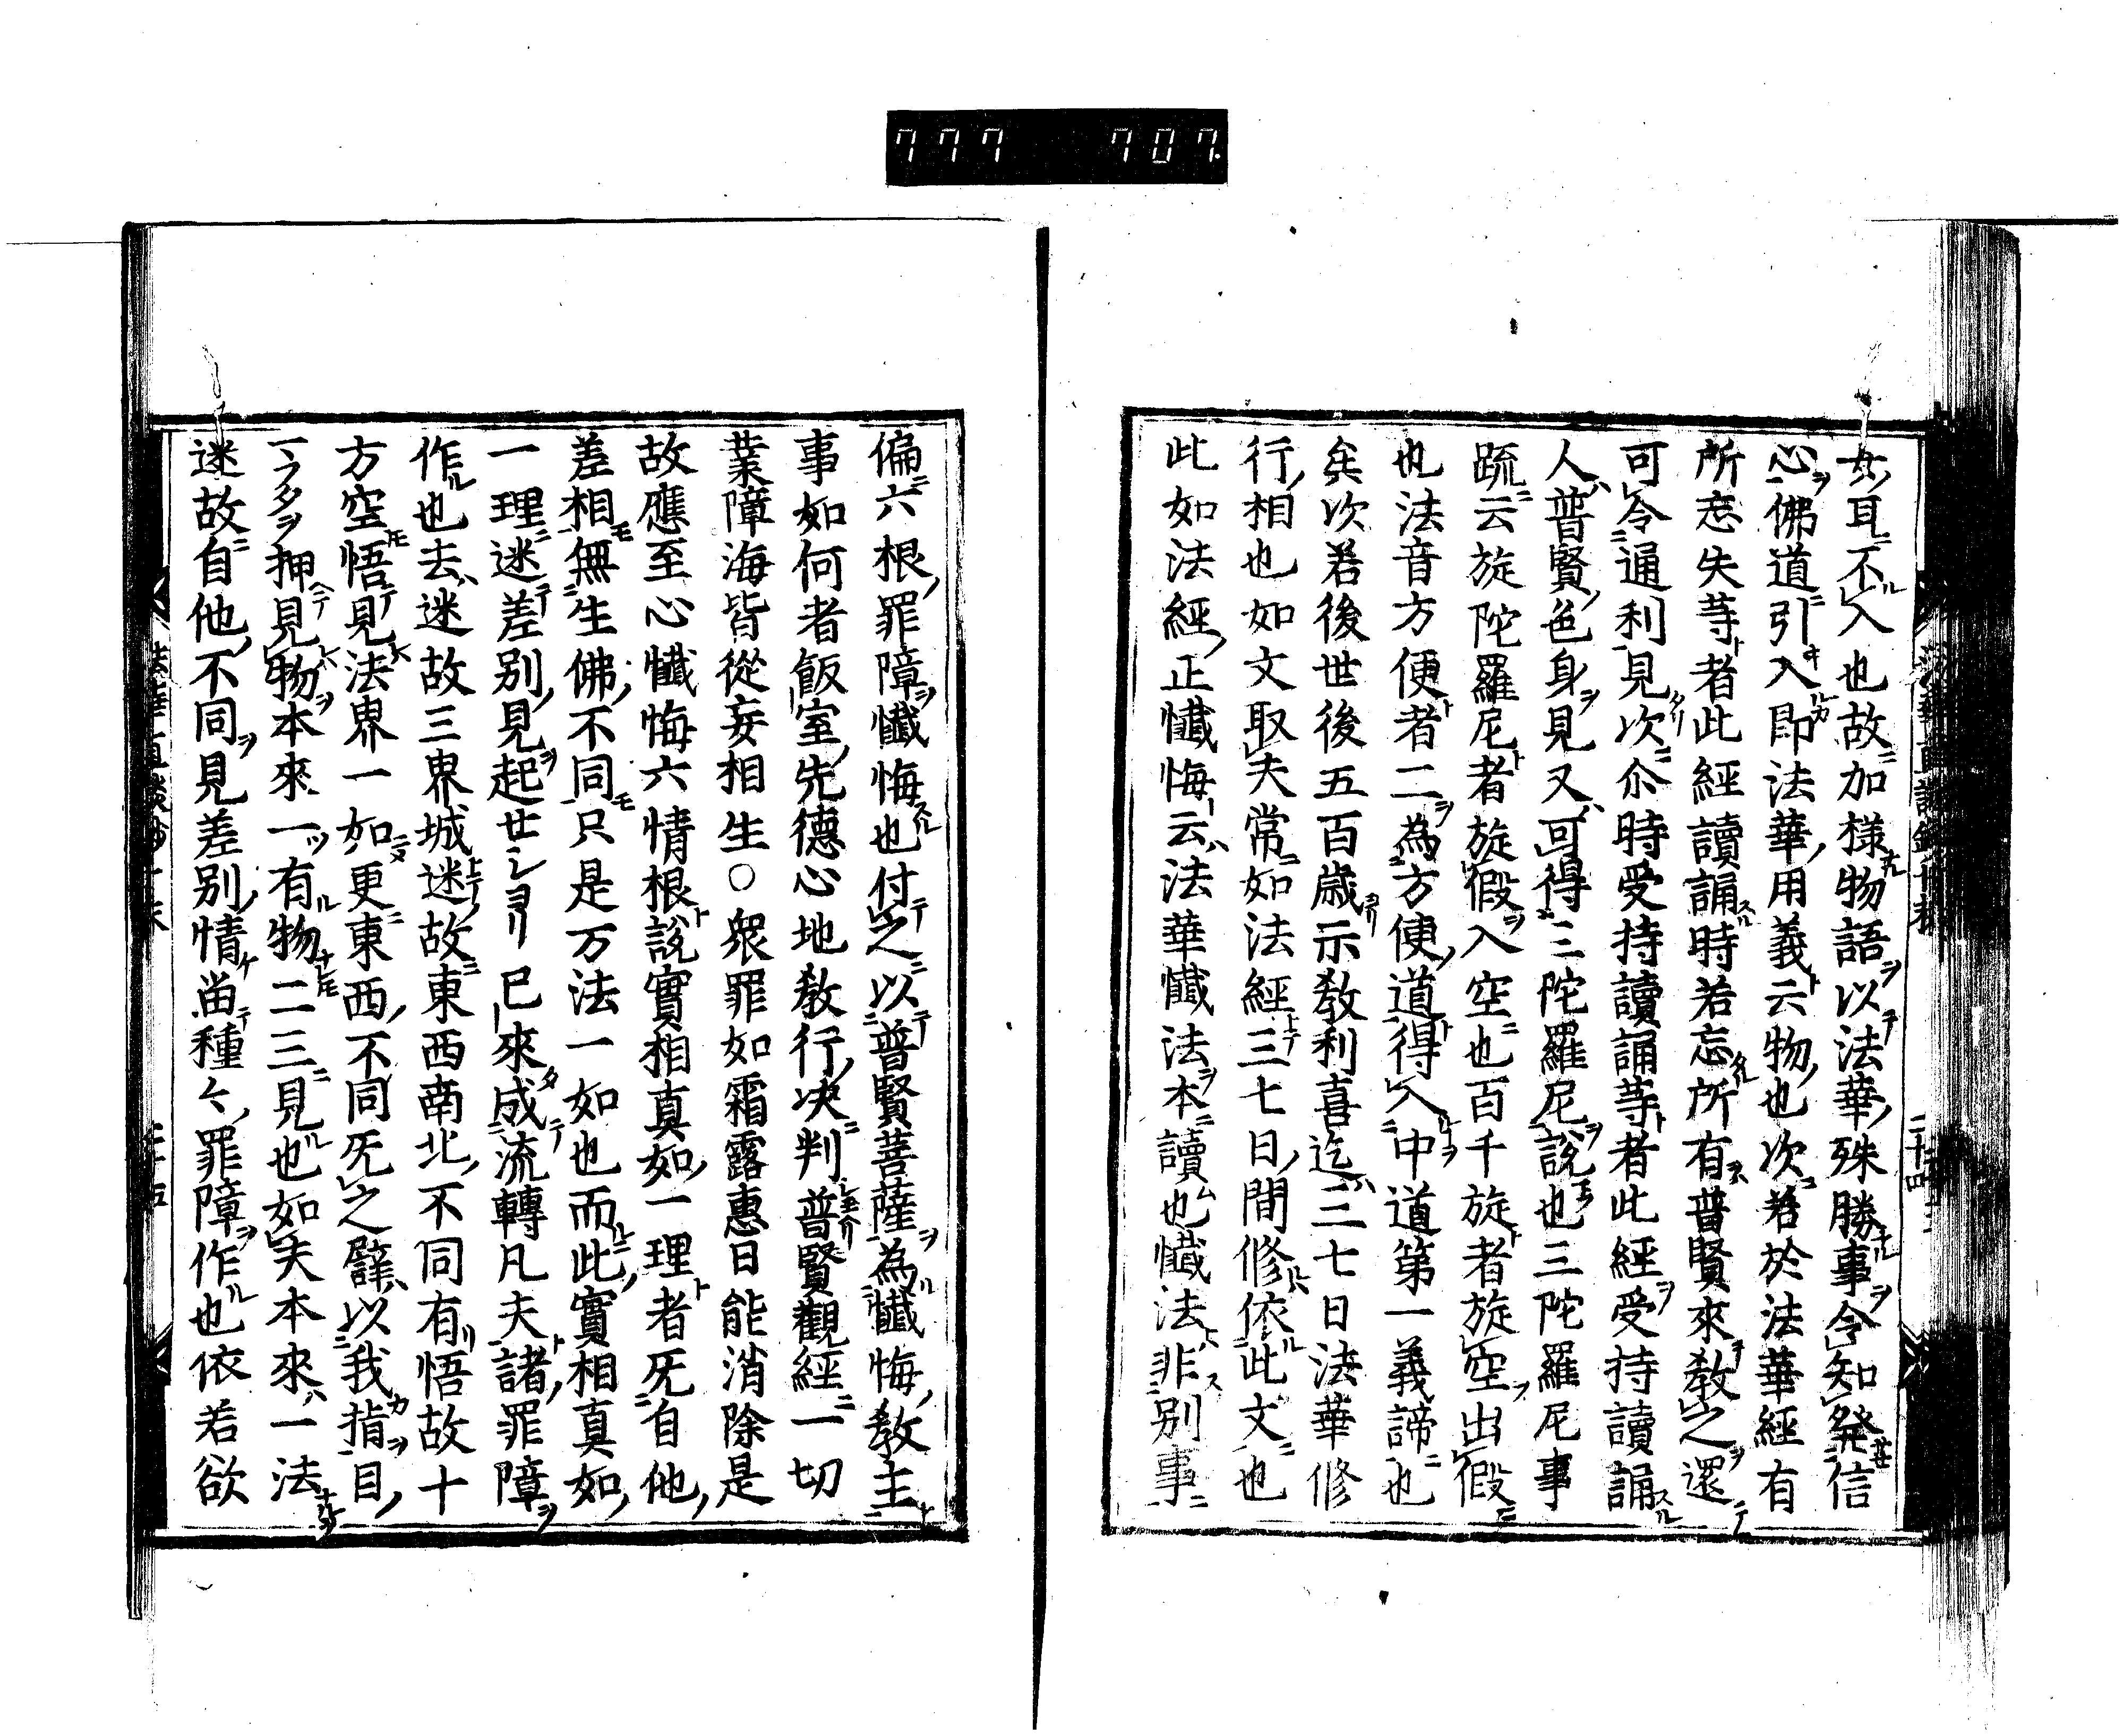 777 707.
女耳不入也故加様物語以法華殊勝事令知発信
心佛道引入即法華用義云物也次若於法華經有
所忘失䓁者此經讀誦時若忘所有普賢來教之還
可令通利見次尒時受持讀誦䓁者此經受持讀誦
人普賢色身見又可得三陀羅尼說也三陀羅尼事
䟽云旋陀羅尼者旋假入空也百千旋者旋空出假
也法音方便者二為方便道得入中道第一義諦也
矣次若後世後五百歳示教利喜迄三七日法華修
行相也如文取夫常如法經三七日間修依此文也
此如法經正懴悔云法華懴法本讀也懴法非别事
偏六根罪障懴悔也付之以普賢菩薩為懴悔教主
事如何者飯室先德心地教行决判普賢觀經一切
業障海皆從妄相生○衆罪如霜露惠日能消除是
故應至心懴悔六情根說實相真如一理者死自他
差相無生佛不同只是万法一如也而此實相真如
一理迷差别見起廿ショリ已來成流轉凡夫諸罪障
作也去迷故三界城迷故東西南北不同有悟故十
方空悟見法界一如更東西不同死之譬以我指目
一フタヲ押見物本來一有物二三見也如夫本來一法
迷故自他不同見差别情畄種々罪障作也依若欲
二十四